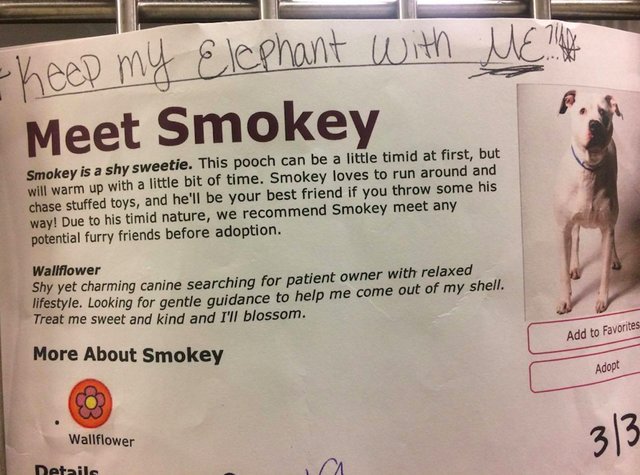 * Keep my Elephant with ME!!
Meet Smokey
Smokey is a shy sweetie. This pooch can be a little timid at first, but
will warm up with a little bit of time. Smokey loves to run around and
chase stuffed toys, and he'll be your best friend if you throw some his
way! Due to his timid nature, we recommend Smokey meet any
potential furry friends before adoption.
Wallflower
Shy yet charming canine searching for patient owner with relaxed
lifestyle. Looking for gentle guidance to help me come out of my shell.
Treat me sweet and kind and I'll blossom.
Add to Favorites
Adopt
More About Smokey
Wallflower
3/3
Details